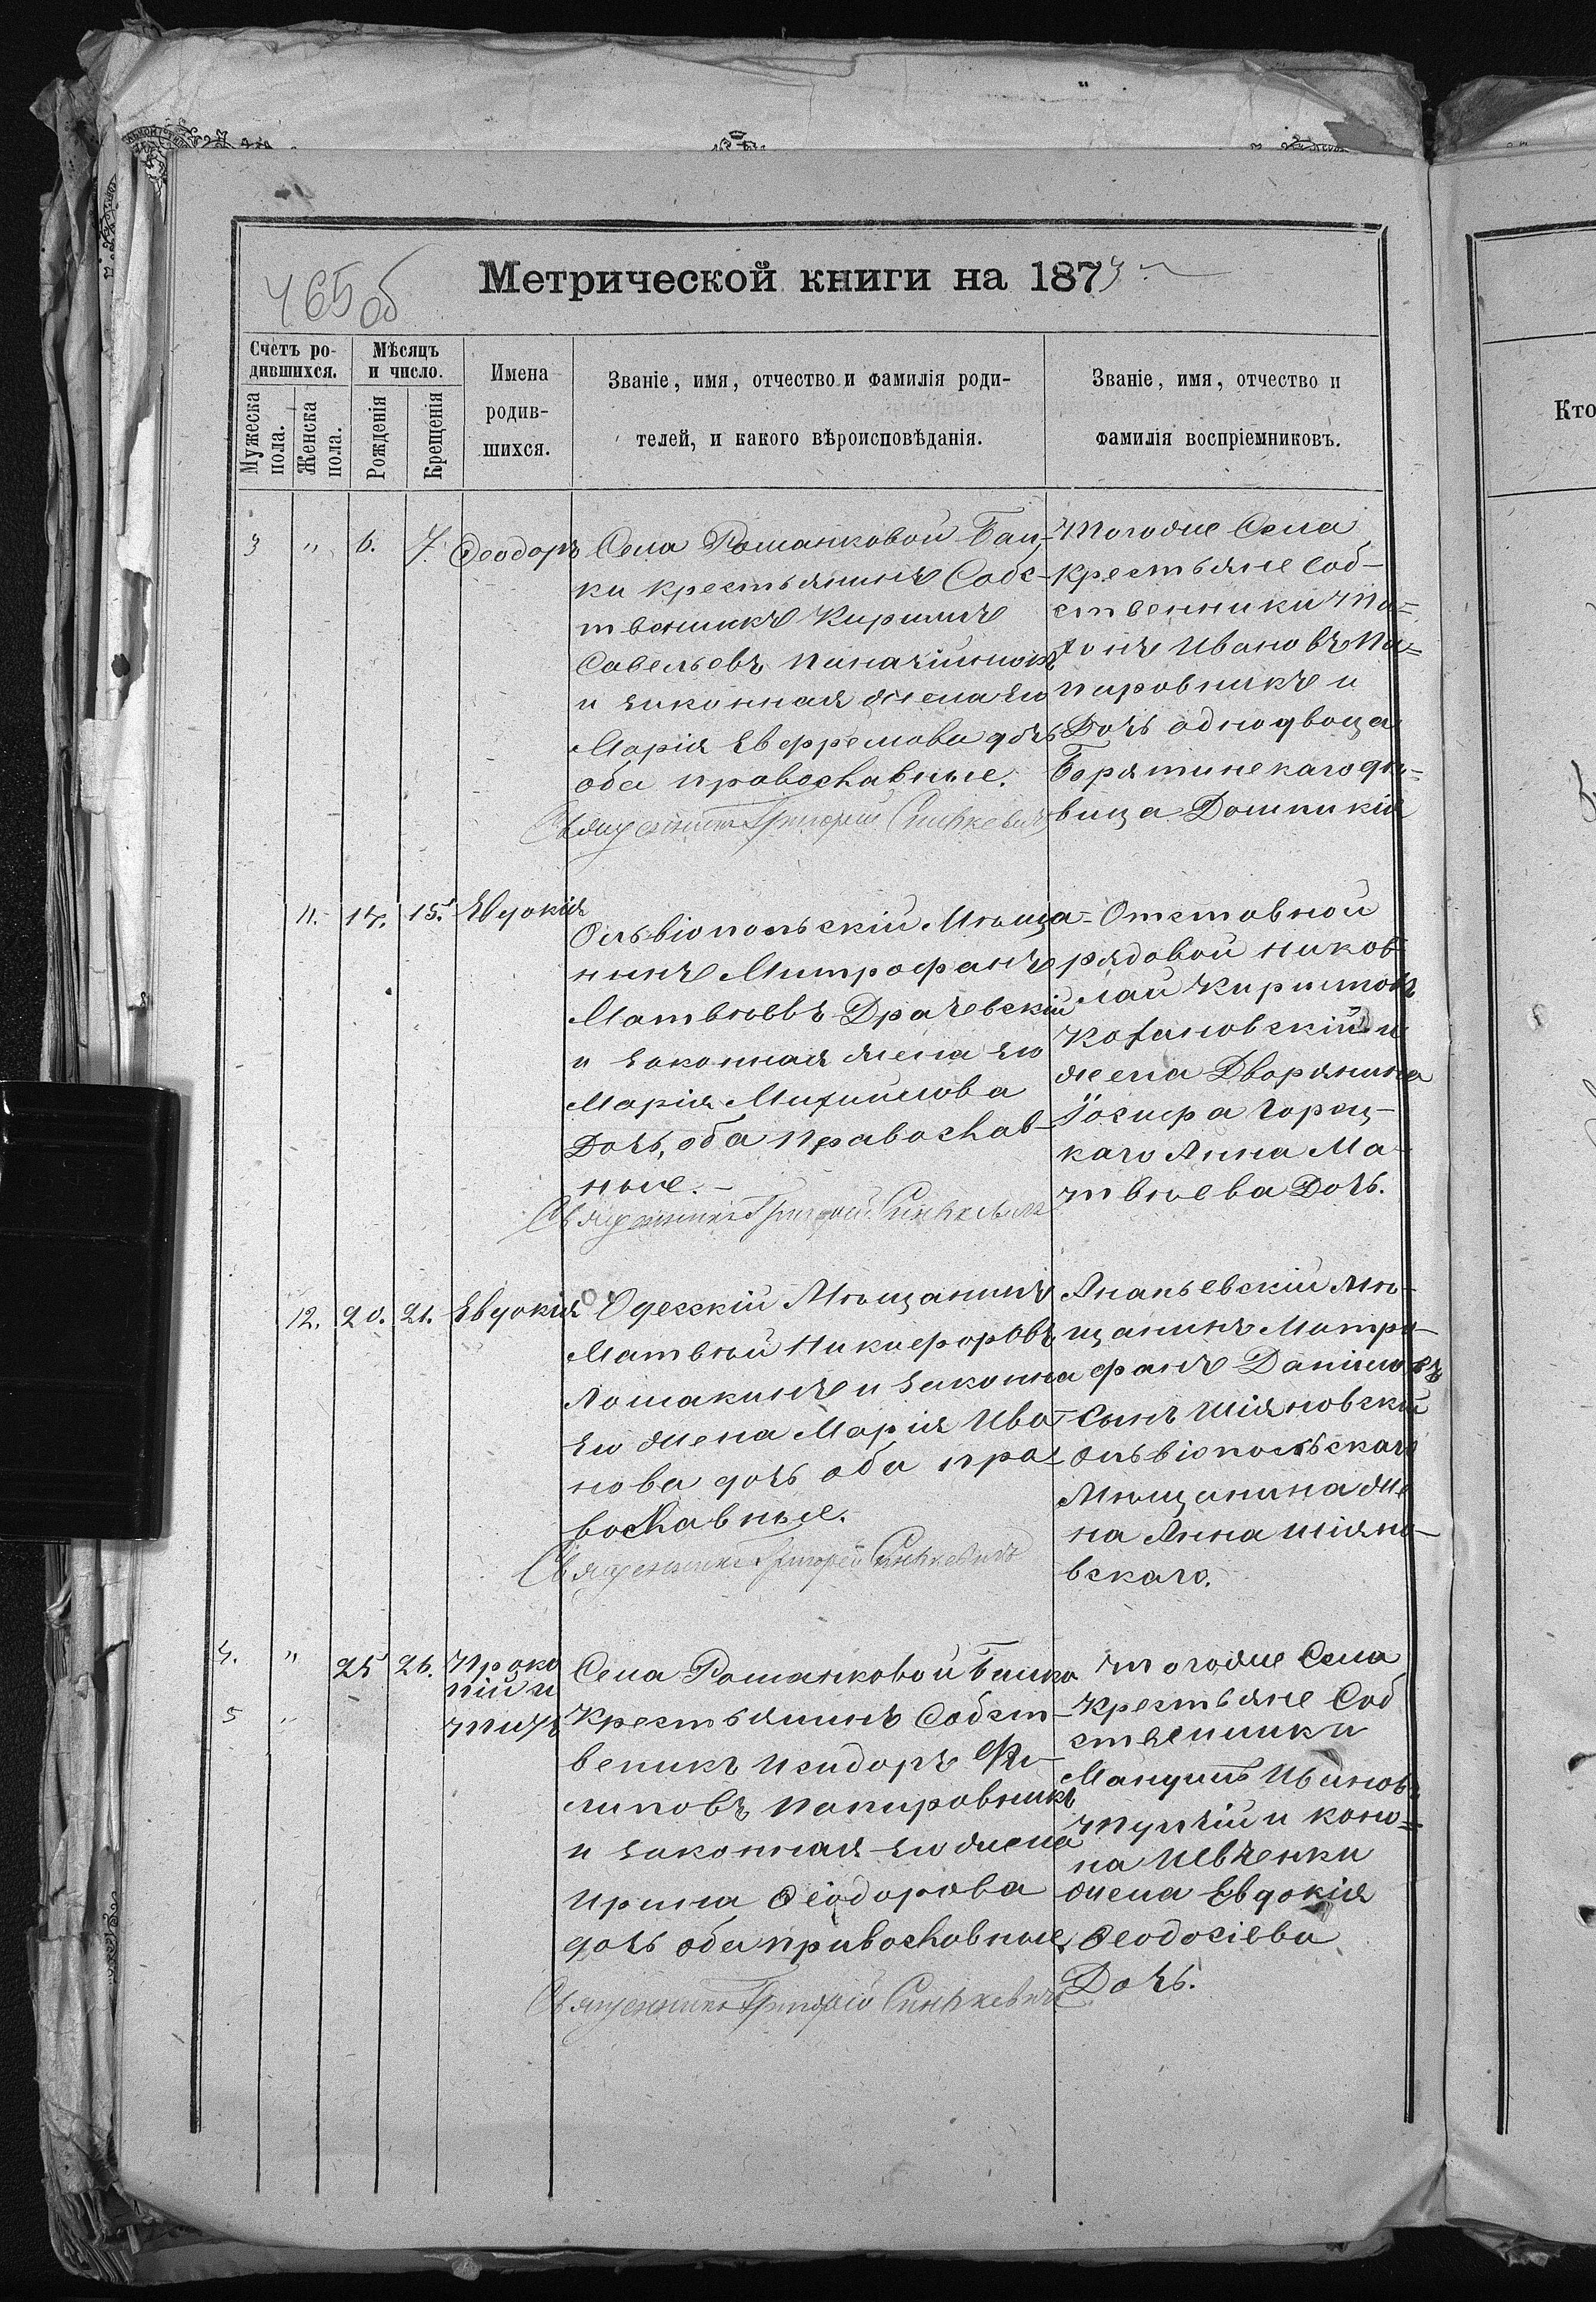 465 об
Метрической книги на 1873
Счетъ ро-
дившихся.
Мѣсяцъ
и число.
Имена
родив-
шихся.
Званіе, имя, отчество и фамилія роди-
телей, и какого вѣроисповѣданія.
Званіе, имя, отчество и
фамилія воспріемниковъ.
Мужеска
пола.
Женска
пола.
Рожденія
Крещенія
Кто
3 " 6. 7. Ѳеодоръ
Села Романковой Бал-
ки крестьянинъ Собс-
твеникъ Кирилъ
Савельевъ
и законная жена его
Марія Евфремова дочь
оба православные.
Священникъ Григорій Синькевичъ
Тогоже Села
крестьяне Соб-
ственники
Ивановъ Па-
пировникъ и
Дочь однодворца
Борятинскаго дѣ-
вица Домникія
11. 14. 15. Евдокія
Ольвіопольскій Мѣща-
нинъ Митрофанъ
Матвѣевъ Драчевскій
и законная жена его
Марія Михайлова
Дочь, оба православ-
ные.-
Священникъ Григорій Синькевичъ
Отставной
рядовой Нико-
лай Кириловъ
Кохановскій и
жена Дворянина
Іосифа Горец-
каго Анна Ма-
твѣева Дочь.
12. 20. 21. Евдокія
Одесскій Мѣщанинъ
Матвѣй Никифоровъ
Лошакинъ и законна
его жена Марія Ива-
нова дочь оба пра-
вославные.
Священникъ Григорій Синькевичъ
Ананьевскій Мѣ-
щанинъ Митро-
фанъ Даниловъ
Сынъ Шіяновскій
Ольвіопольскаго
Мѣщанина же-
на Анна Шіяно-
вскаго.
4. " 25 26. Проко
пій и
5 " Титъ
Села Романковой Балки
Крестьянинъ Собст-
веникъ Исидоръ Фи-
липовъ Папировникъ
и законная его жена
Ирина Ѳеодорова
дочь оба православные.
Священникъ Григорій Синькевичъ
Тогоже Села
Крестьяне Соб
ственники
Мануилъ Ивановъ
и Коно-
на Шевченки
жена Евдокія
Ѳеодосіева
Дочь.